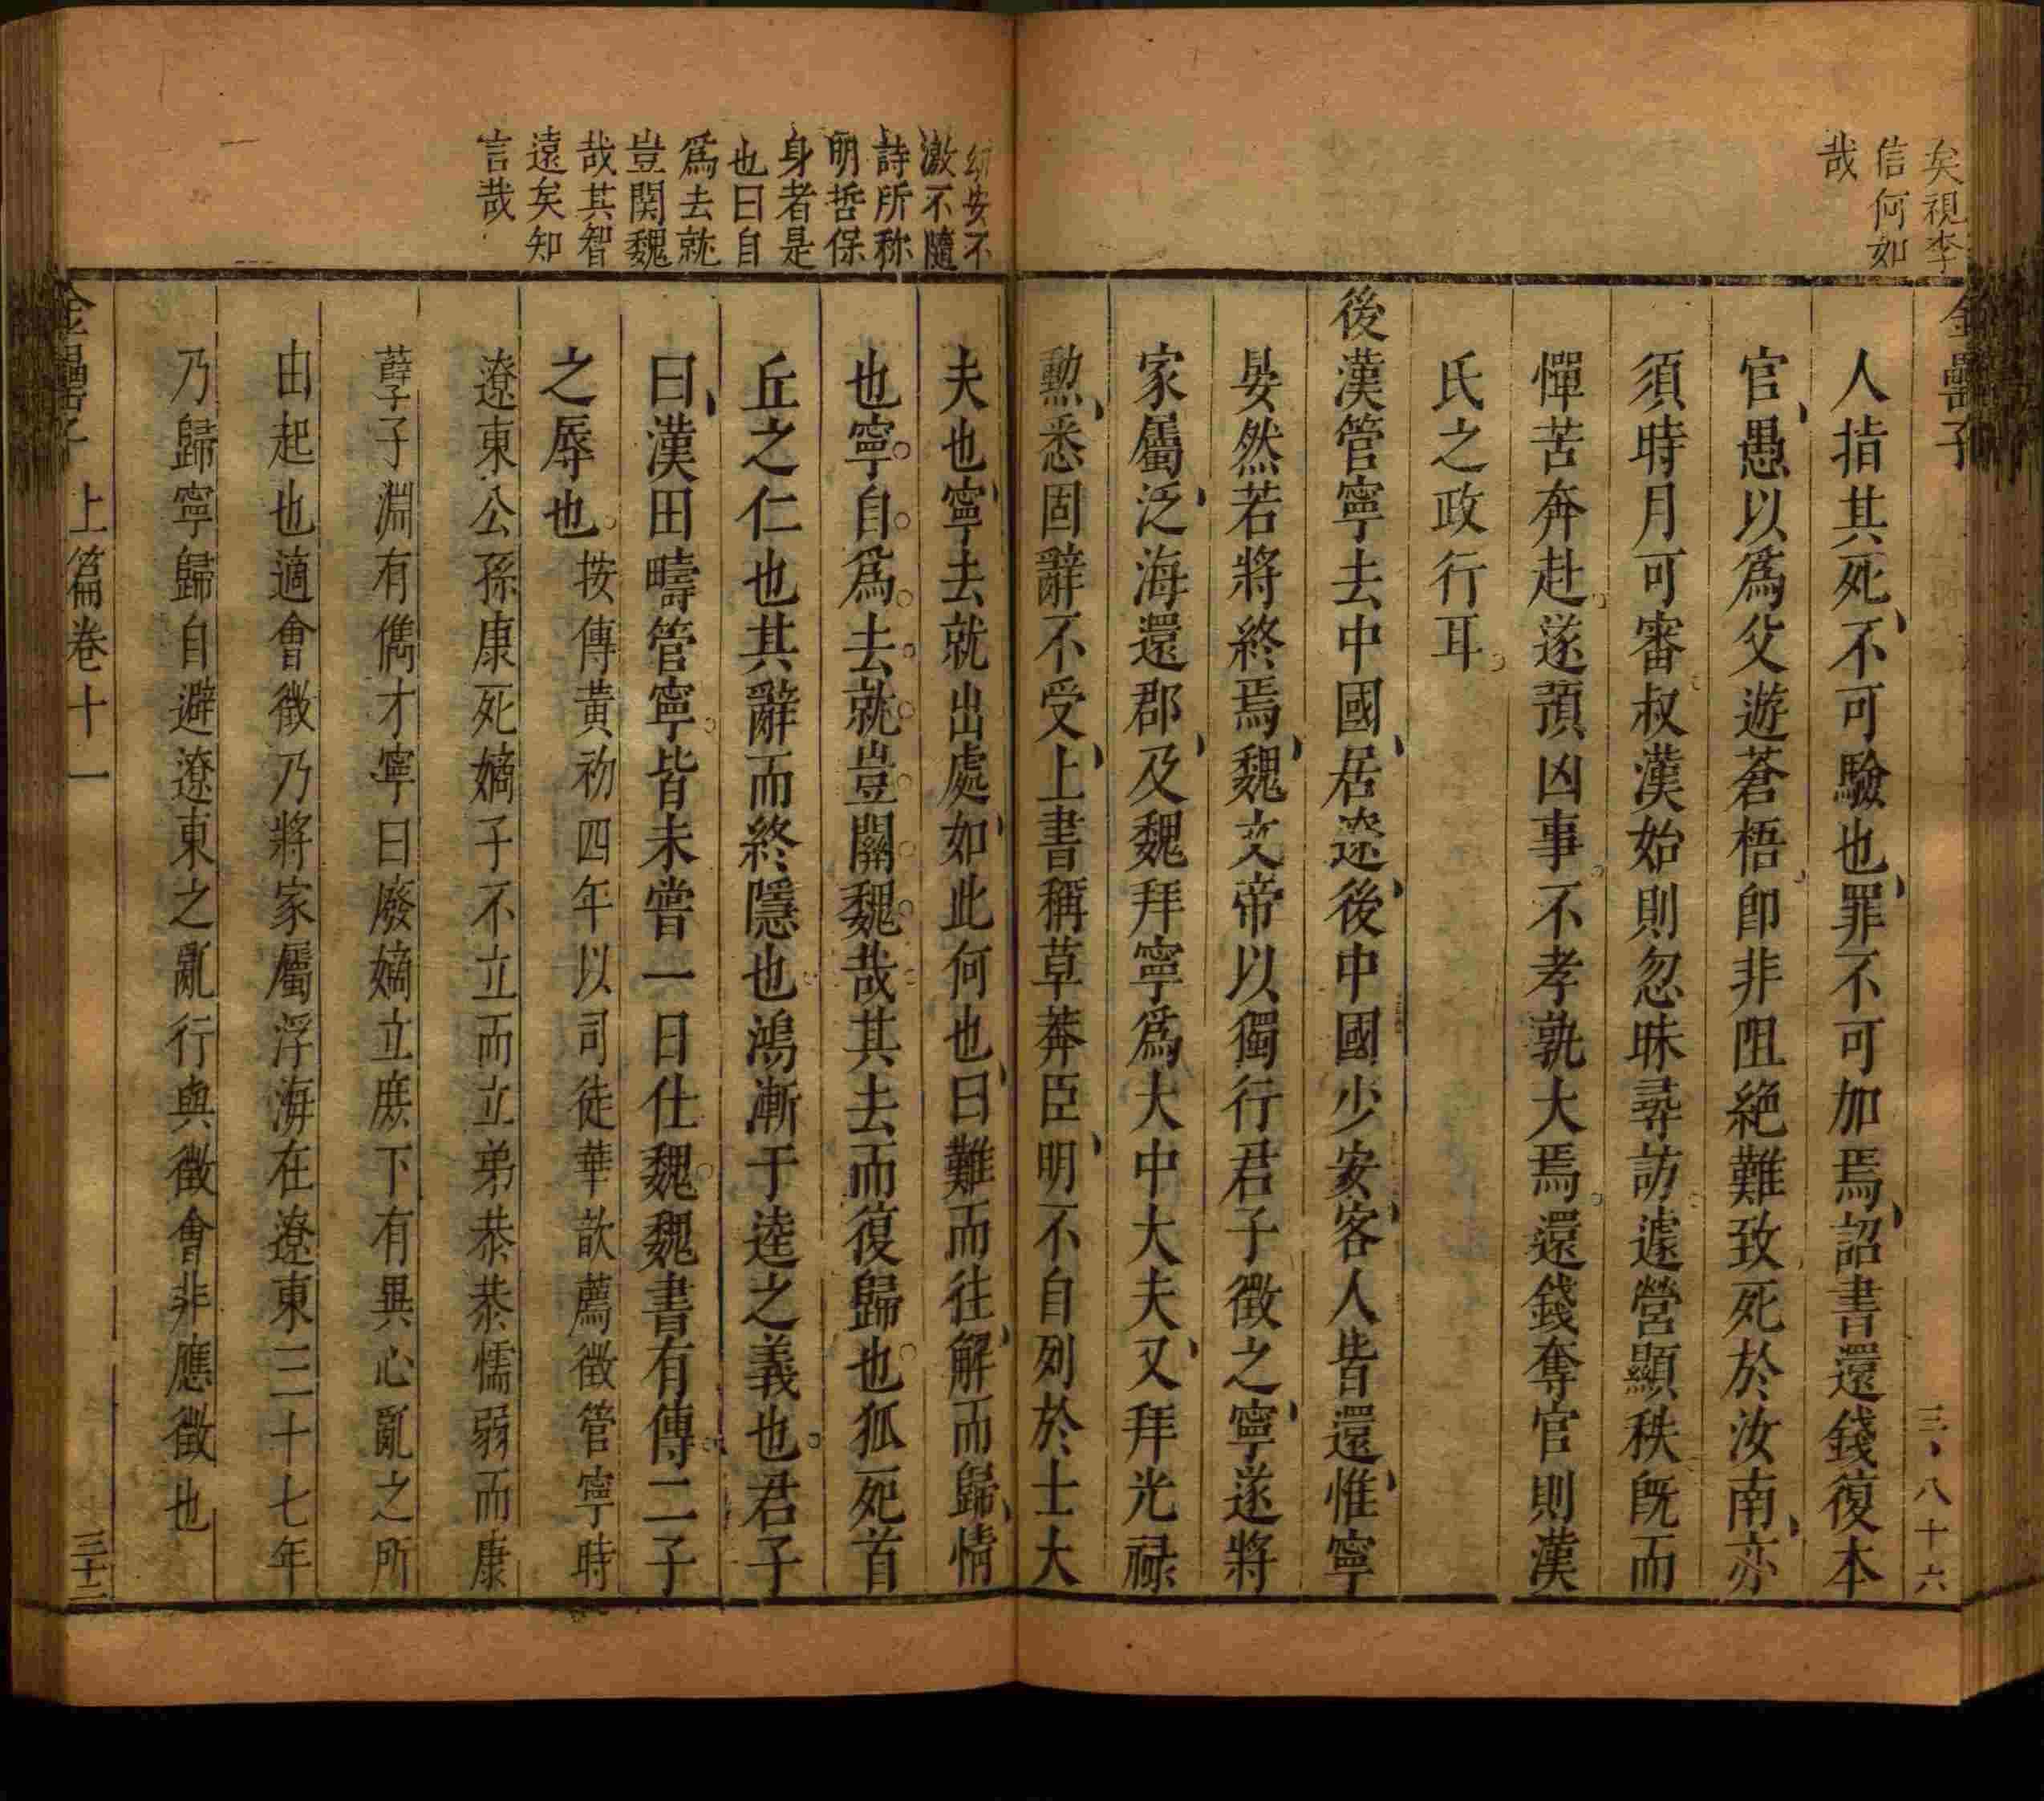 矣視李
信何如
哉
金罍子
三八十六
人指其死不可驗也罪不可加焉詔書還錢復本
官愚以爲父遊蒼梧卽非阻絶難致死於汝南亦
須時月可審叔漢始則忽昧尋訪遽營顯秩旣而
憚苦奔赴遂預凶事不孝孰大焉還錢奪官則漢
氏之政行耳
後漢管寧去中國居遼後中國少安客人皆還惟寧
晏然若將終焉魏文帝以獨行君子徵之寧遂將
家屬泛海還郡及魏拜寧爲大中大夫又拜光祿
勲悉固辭不受上書稱草莽臣明不自列於士大
幼安不
激不隨
詩所称
明哲保
身者是
也曰自
爲去就
豈関魏
哉其智
遠矣知
言哉
夫也寧去就出處如此何也曰難而往解而歸情
也寧自爲去就豈關魏哉其去而復歸也狐死首
丘之仁也其辭而終隱也鴻漸于逵之義也君子
曰漢田疇管寧皆未嘗一日仕魏魏書有傳二子
之辱也按傳黃初四年以司徒華歆薦徵管寧時
遼東公孫康死嫡子不立而立弟恭恭懦弱而康
孽子淵有儁才寧曰廢嫡立庶下有異心亂之所
由起也適會徵乃將家屬浮海在遼東三十七年
乃歸寧歸自避遼東之亂行與徵會非應徵也
金罍子 上篇卷十一 三十二